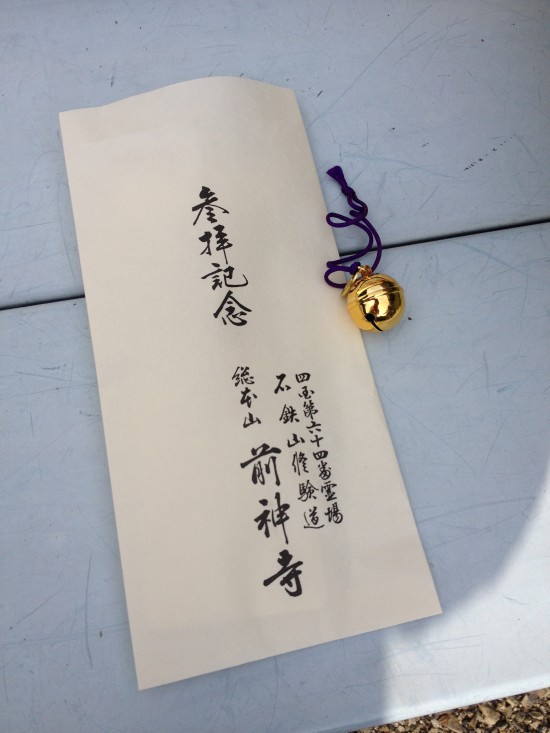 参拝記念
四国第六十四番霊場
石鉄山修験道
総本山 前神寺